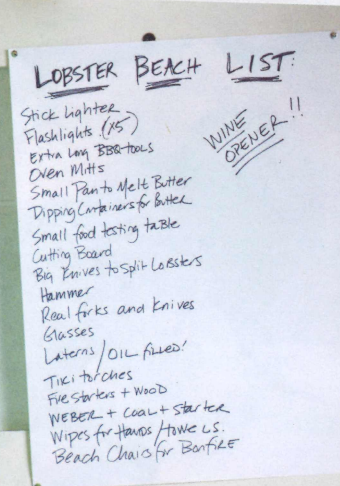 LOBSTER BEACH LIST:
Stick Lighter
Flashlights (x5)
Extra Long BBQ-tools
Oven Mitts
Small Pan to Melt Butter
Dipping Containers for Butter
Small food testing table
Cutting Board
Big Knives to Split Lobsters
Hammer
Real forks and Knives
Glasses
Laterns / OIL filled!
Tiki torches
Fire Starters + WOOD
WEBER + COAL + Starter
Wipes for Hands / towels.
Beach Chairs for BonfiRE
WINE
OPENER!!